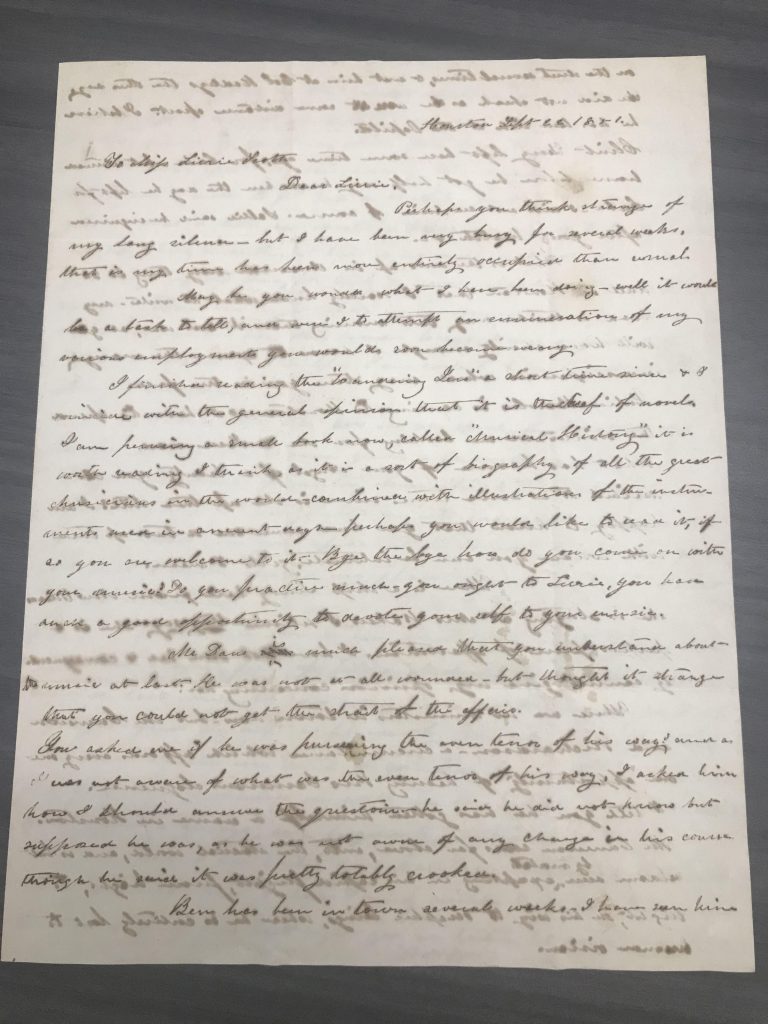 Houston Sept 22 1851.
To Miss Lizzie Scott
Dear Lizzie,
Perhaps you think strange of
my long silence – but I have been very busy for several weeks,
that is my time has been more entirely occupied than usual
May be you wonder what I have been doing – well it would
be a task to tell, and were I to attempt an enumeration of my
various employments you would soon become weary.
I finished reading the "Wandering Jew" a short time since & I
with the general opinion that it is the chief of novels
I am perusing a small book now, called "Musical History" it is
worth reading I think as it is a sort of biography of all the great
musicians in the world combined with illustrations of the instru-
ments used in ancient days perhaps you would like to read it, if
so you are welcome to it. Bye the bye how do you come on with
your music? Do you practice much you ought to Lizzie, you have
such a good opportunity to devote your self to your music.
Mr Davis is much pleased that you understand about
music at last. He was not at all wounded – but thought it strange
that you could not get the strait of the affair.
You asked me if he was pursueing the even tenor of his way? and as
I was not aware of what was the even tenor of his way, I asked him
how I should answer the question – he said he did not know but
supposed he was, as he was not aware of any change in his course
though he said it was pretty totably crooked.
Ben has been in town several weeks – I have seen him